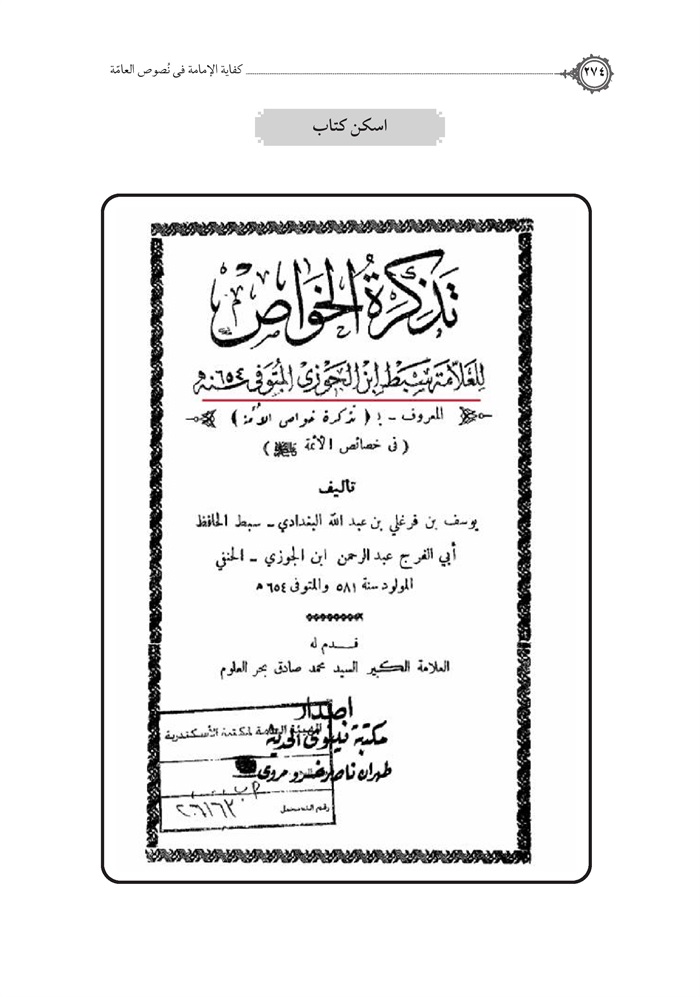 ٢٧٤
كفاية الإمامة في نُصوص العامّة
اسکن کتاب
تَذكِرَةُ الخَوَاصّ
للعلّامة سبط ابن الجوزي المتوفى سنة ٦٥٤ هـ
المعروف - بـ ( تذكرة خواص الأئمة )
( في خصائص الأئمة )
تأليف
يوسف بن فرغلي بن عبد الله البغدادي - سبط الحافظ
أبي الفرج عبد الرحمن ابن الجوزي - الحنفي
المولود سنة ٥٨١ والمتوفى ٦٥٤ هـ
قدم له
العلامة الكبير السيد محمد صادق بحر العلوم
اصدار
مكتبة نينوى الحديثة
طهران ناصر خسرو مروي
الهيئة العامة لمكتبة الأسكندرية
رقم التسجيل